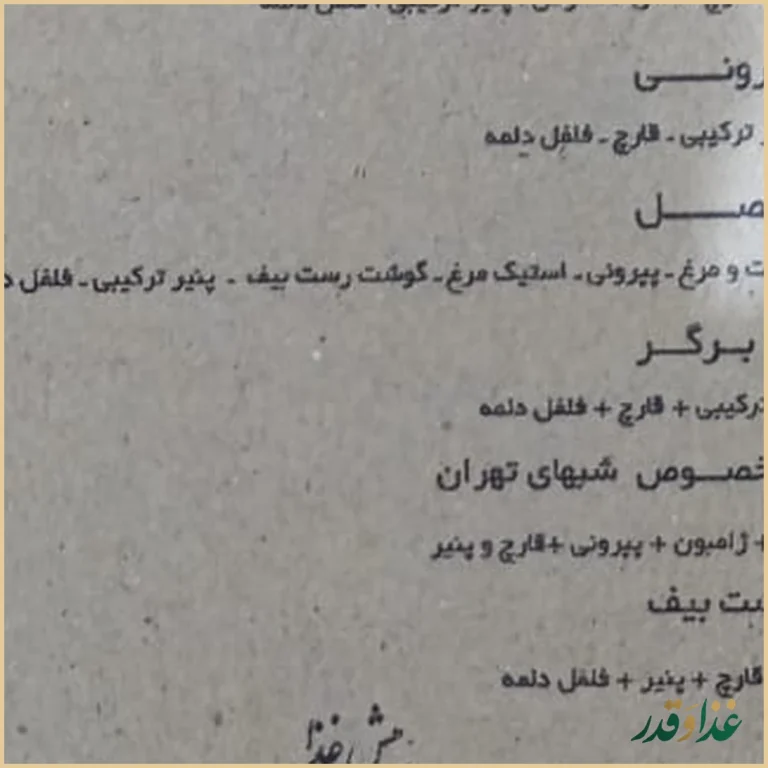 ـرونی
ترکیبی - قارچ - فلفل دلمه
ـصل
و مرغ - پپرونی - استیک مرغ - گوشت رست بیف - پنیر ترکیبی - فلفل
برگر
ترکیبی + قارچ + فلفل دلمه
ـخصوص شبهای تهران
+ ژامبون + پپرونی + قارچ و پنیر
ـست بیف
قارچ + پنیر + فلفل دلمه
غذا و قدر